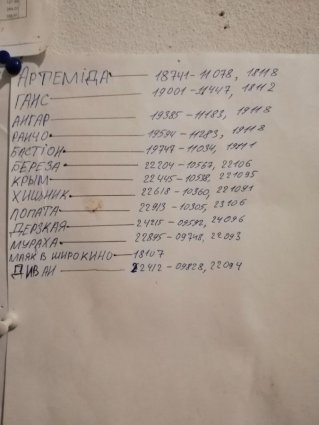 АРТЕМІДА 18741-11078, 18118
ГАИС 19001-11447, 18112
АНГАР 19385-11183, 19118
РАНЧО 19594-11283, 19118
БАСТІОН 19747-11034, 19111
БЕРЕЗА 22204-10557, 22106
КРЫМ 22445-10518, 221095
ХИЩНИК 22618-10360, 221091
ЛОПАТА 22913-10305, 23106
ДЕРЗКАЯ 24215-09592, 24096
МУРАХА 22895-09718, 22093
МАЯК В ШИРОКИНО 18107
ДИВАН 22412-09828, 22094